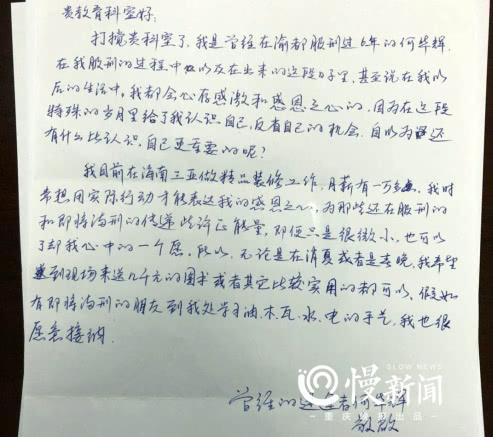 贵教育科室好：
打搅贵科室了，我是曾经在渝都服刑过6年的何华辉。
在我服刑的过程中以及在出来的这段日子里，甚至说在我以
后的生活中，我都会心存感激和感恩之心的，因为在这段
特殊的岁月里给了我认识自己，反省自己的机会。自以为还
有什么比认识自己更重要的呢？
我目前在海南三亚做精品装修工作，月薪有一万多，我时
常想用实际行动才能表达我的感恩之心，为那些还在服刑的
和即将满刑的传递些许正能量，即便只是很微小，也可以
了却我心中的一个愿，所以，无论是在消夏或者是春晚，我希望
到现场来送几千元的图书或者其它比较实用的都可以，假如
有即将满刑的朋友到我处学习油、木、瓦、水、电的手艺，我也很
愿意接纳。
SLOW NEWS
慢新闻
重庆 出品
曾经的 者何华辉
敬启